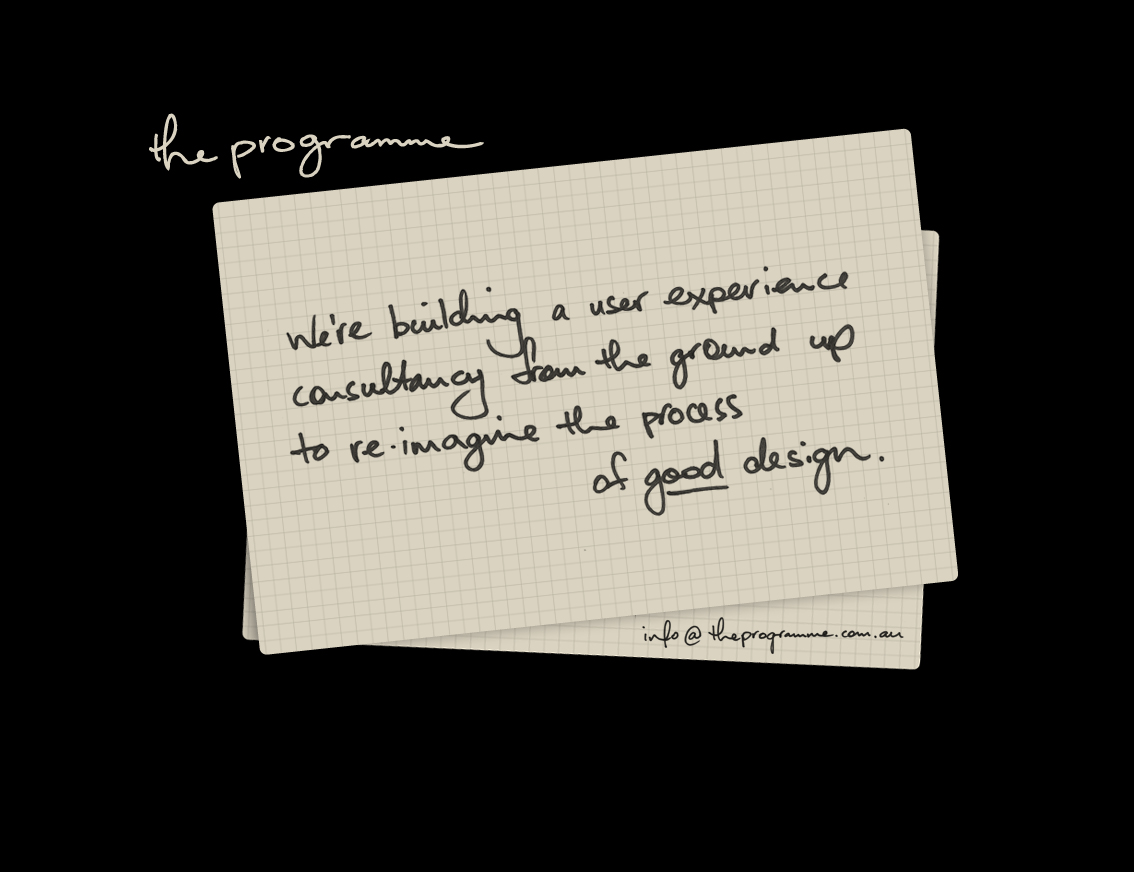 the programme
We're building a user experience
consultancy from the ground up
to re-imagine the process
of good design.
info@theprogramme.com.au